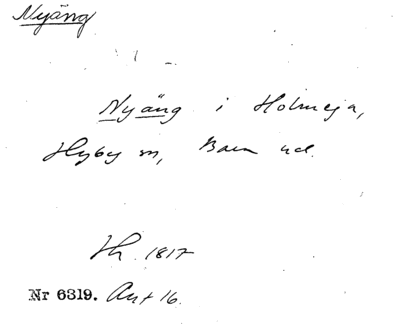 Nyäng
Nyäng i Holmeja,
Hyby sn, Bara hd.
Th. 1817
Nr 6319. Ant 16.